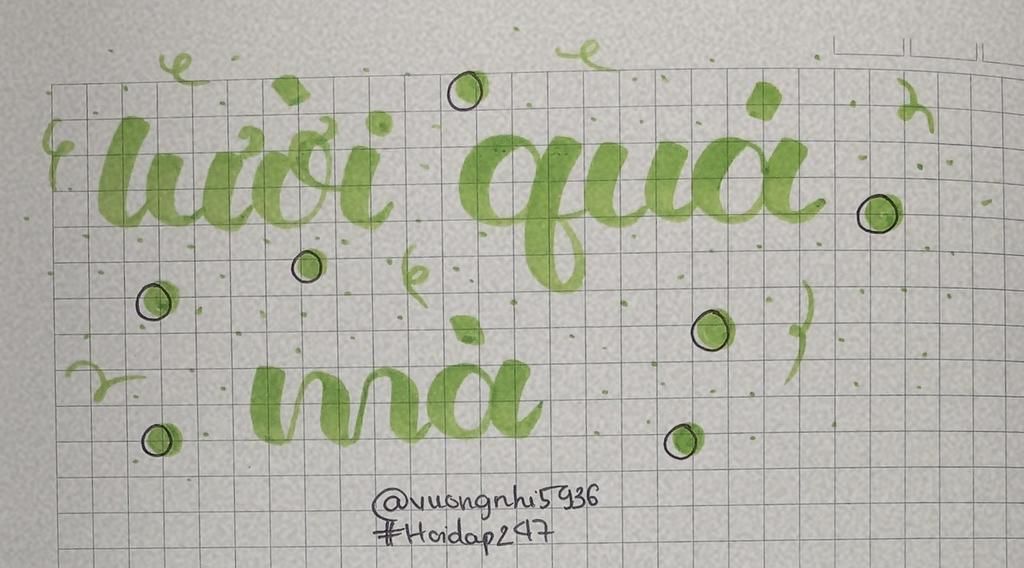 lười quá
mà
@vuongnhi5936
#Hoidap247